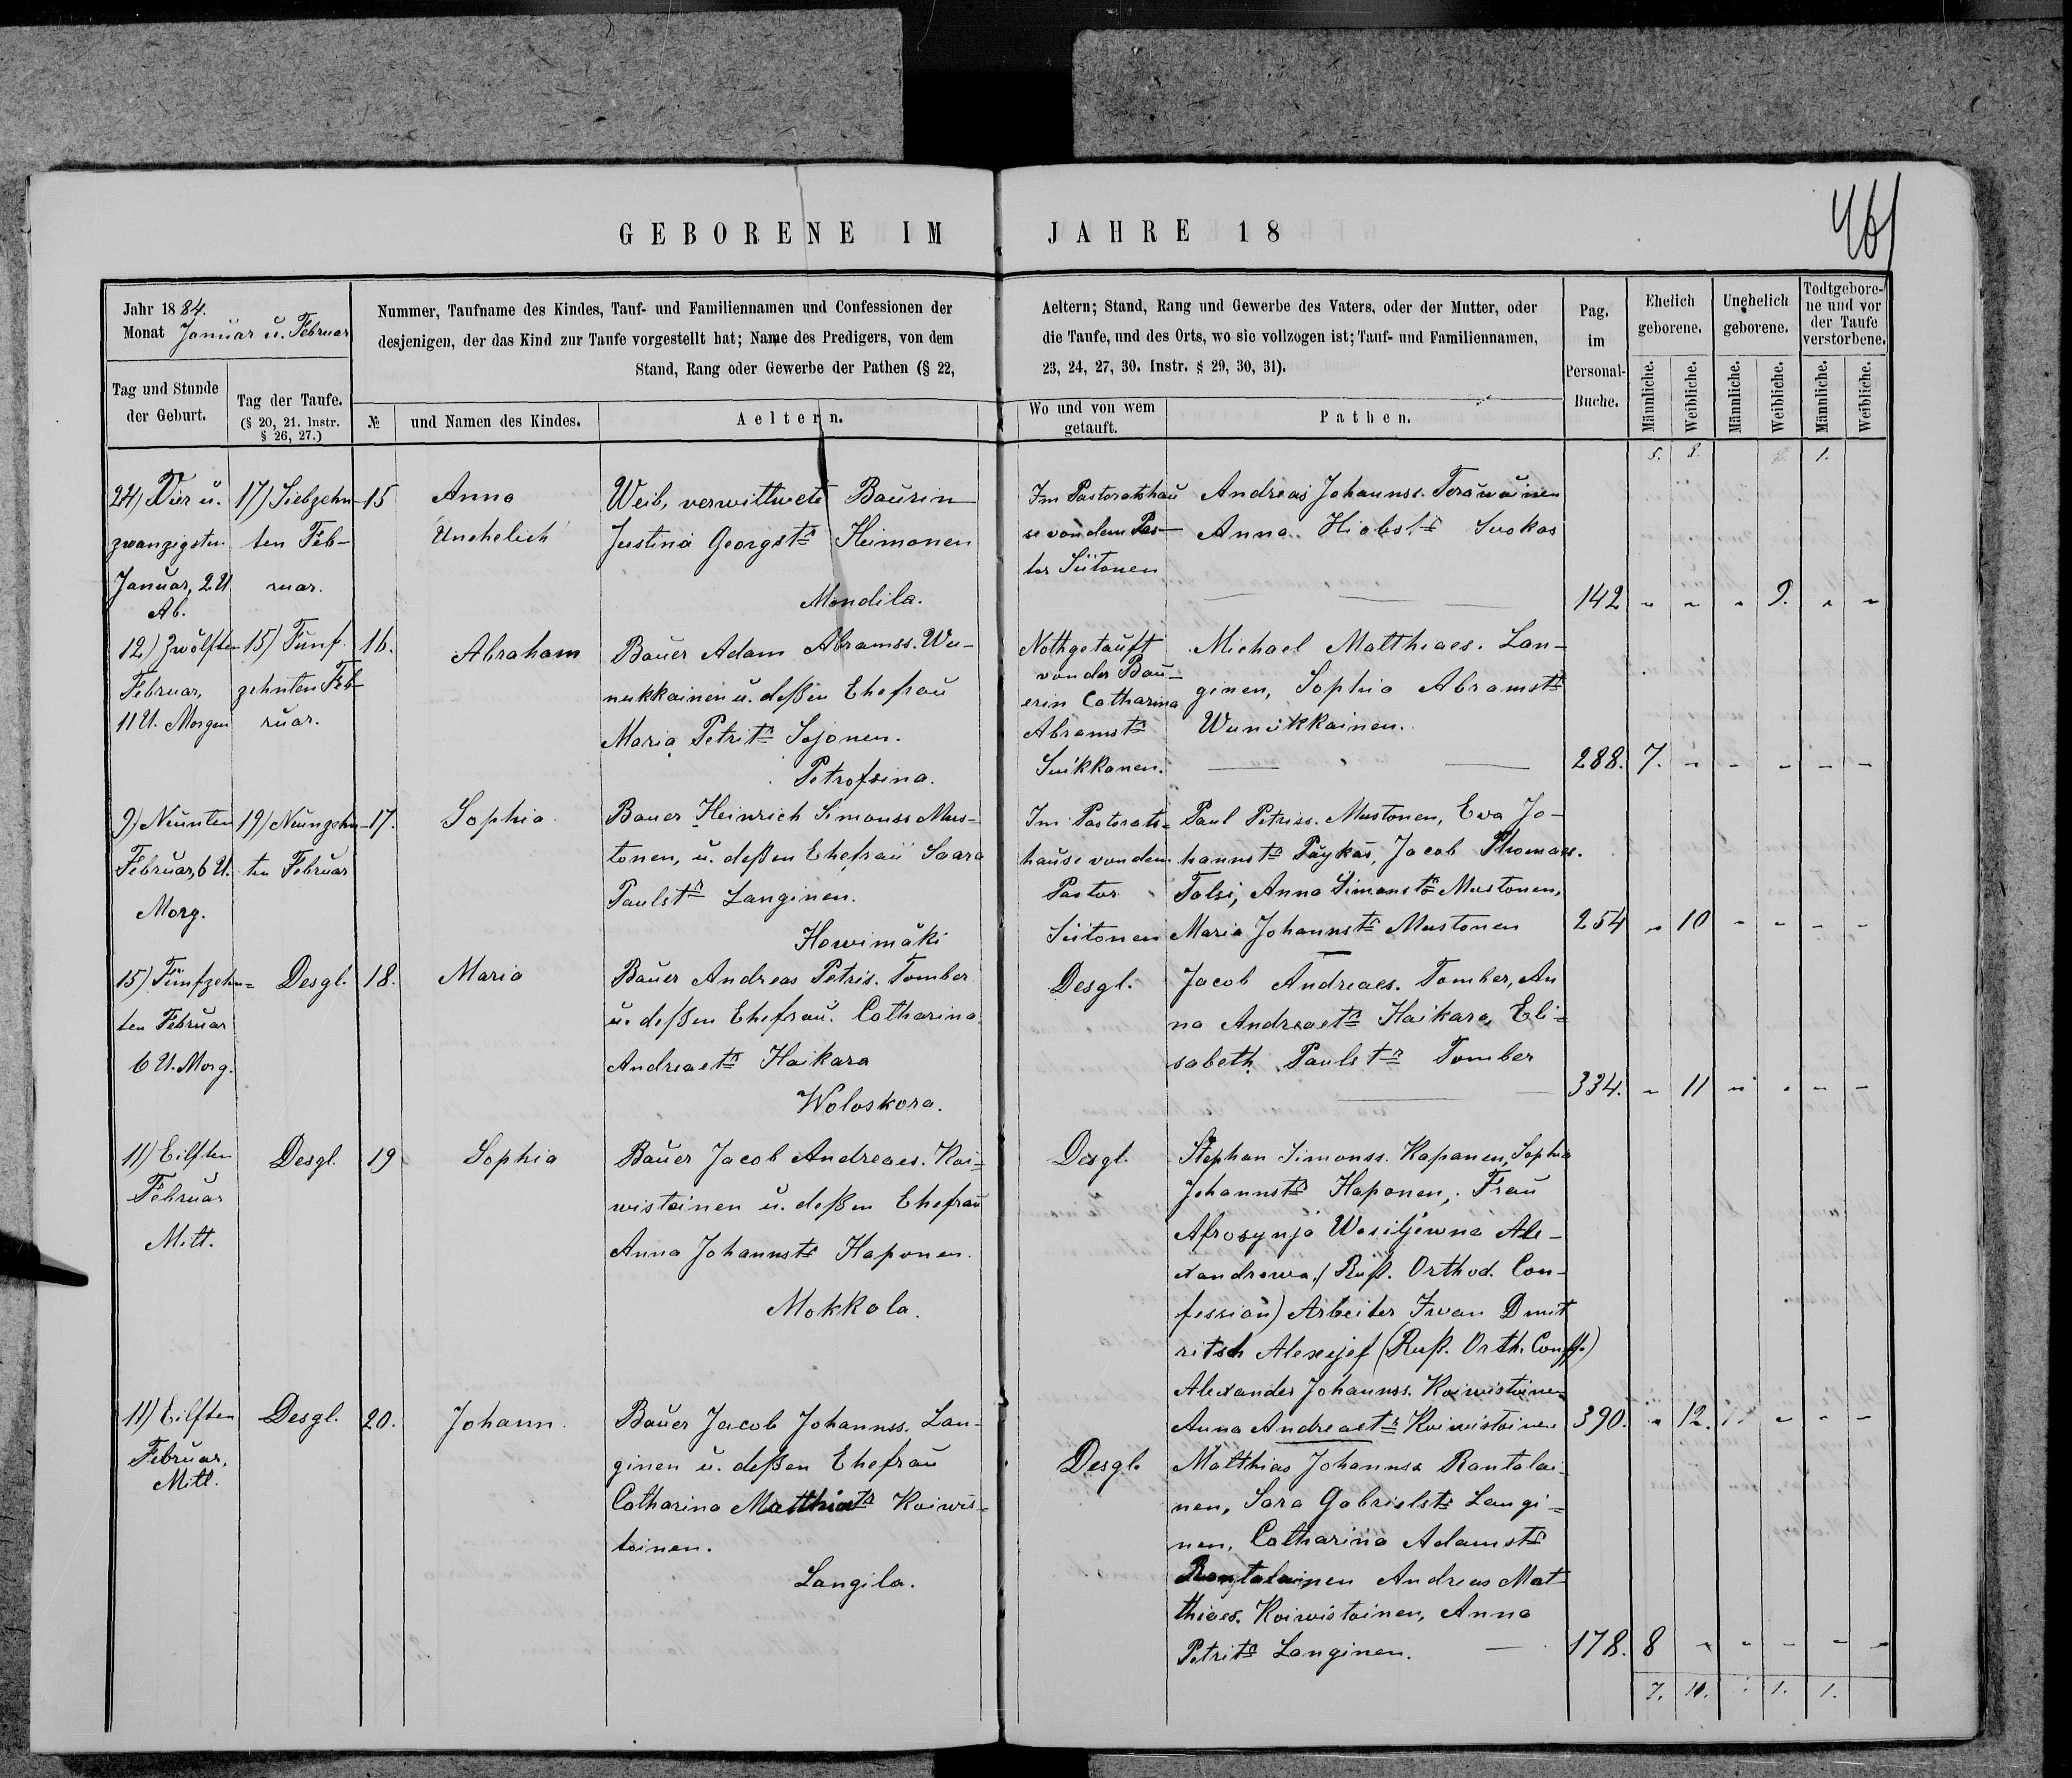 461
GEBORENE IM JAHRE 18
Jahr 1884.
Monat Januar u. Februar
Nummer, Taufname des Kindes, Tauf- und Familiennamen und Confessionen der
desjenigen, der das Kind zur Taufe vorgestellt hat; Name des Predigers, von dem
Stand, Rang oder Gewerbe der Pathen (§ 22,
Aeltern; Stand, Rang und Gewerbe des Vaters, oder der Mutter, oder
die Taufe, und des Orts, wo sie vollzogen ist; Tauf- und Familiennamen,
23, 24, 27, 30. Instr. § 29, 30, 31).
Pag.
im
Personal-
Buche.
Ehelich
geborene.
Unehelich
geborene.
Todtgebore-
ne und vor
der Taufe
verstorbene.
Tag und Stunde
der Geburt.
Tag der Taufe.
(§ 20, 21. Instr.
§ 26, 27.)
№
und Namen des Kindes.
Aeltern.
Wo und von wem
getauft.
Pathen.
Männliche.
Weibliche.
Männliche.
Weibliche.
Männliche.
Weibliche.
5. 8. 1.
24) Vier u.
zwanzigsten
Januar, 2 U
Ab.
17) Siebzehn-
ten Feb-
ruar.
15
Anna
Unehelich
Weib, verwittwete Bäurin
Justina Georgstr Heimonen
Mondila.
Im Pastoratshau
se von dem Pas-
tor Siitonen
Andreas Johannss. Teräwäinen
Anna Hiobstr Suokas
142 " " " 9. " "
12) Zwölften
Februar,
11 U. Morgen
15) Fünf
zehnten Feb-
ruar.
16.
Abraham
Bauer Adam Abramss. Wu-
nukkainen u. deßen Ehefrau
Maria Petristr Sojonen.
Petrofsina.
Nothgetauft
von der Bäu-
erin Catharina
Abramstr
Suikkanen.
Michael Matthiaes. Lan-
ginen, Sophia Abramstr
Wunukkainen.
288. 7. - - - - -
9) Neunten
Februar, 6 U.
Morg.
19) Neunzehn-
ten Februar
17.
Sophia
Bauer Heinrich Simonss Mus-
tonen, u. deßen Ehefrau Saara
Paulstr Langinen.
Howimäki
Im Pastorats-
hause von dem
Pastor
Siitonen
Paul Petriss. Mustonen, Eva Jo-
hannstr Päykäs, Jacob Thomass.
Talsi, Anna Simonstr Mustonen,
Maria Johannstr Mustonen
254 " 10 - - - -
15) Fünfzehn-
ten Februar
6 U. Morg.
Desgl.
18.
Maria
Bauer Andreas Petris. Tomber
u. deßen Ehefrau Catharina
Andreaetr Haikara
Woloskora.
Desgl.
Jacob Andreaes. Tomber, An
na Andreaetr Haikara, Eli-
sabeth Paulstr Tomber
334. - 11 " - - -
11) Eilften
Februar
Mitt.
Desgl.
19
Sophia
Bauer Jacob Andreaes. Koi-
wistoinen u. deßen Ehefrau
Anna Johannstr Haponen.
Mokkola.
Desgl.
Stephan Simonss. Kapanen, Sophia
Johannstr Haponen, Frau
Afrosynja Wasiljewna Ale-
xandrowa, (Ruß. Orthod. Con-
fession) Arbeiter Iwan Dmit
ritsch Alexejef (Ruß. Orth. Conff.)
Alexander Johannss. Koiwistoinen
Anna Andreaetr Koiwistoinen
390. " 12. - - -
11) Eilften
Februar,
Mitt.
Desgl.
20.
Johann.
Bauer Jacob Johannss. Lan-
ginen u. deßen Ehefrau
Catharina Matthiaetr Koiwis-
toinen.
Langila.
Desgl.
Matthias Johannss Rantalai-
nen, Sara Gabrielstr Langi-
nen, Catharina Adamstr
Rantalainen Andreas Mat-
thiaes. Koiwistoinen, Anna
Petristr Langinen.
178. 8 - - - - -
7. 10. 1. 1.